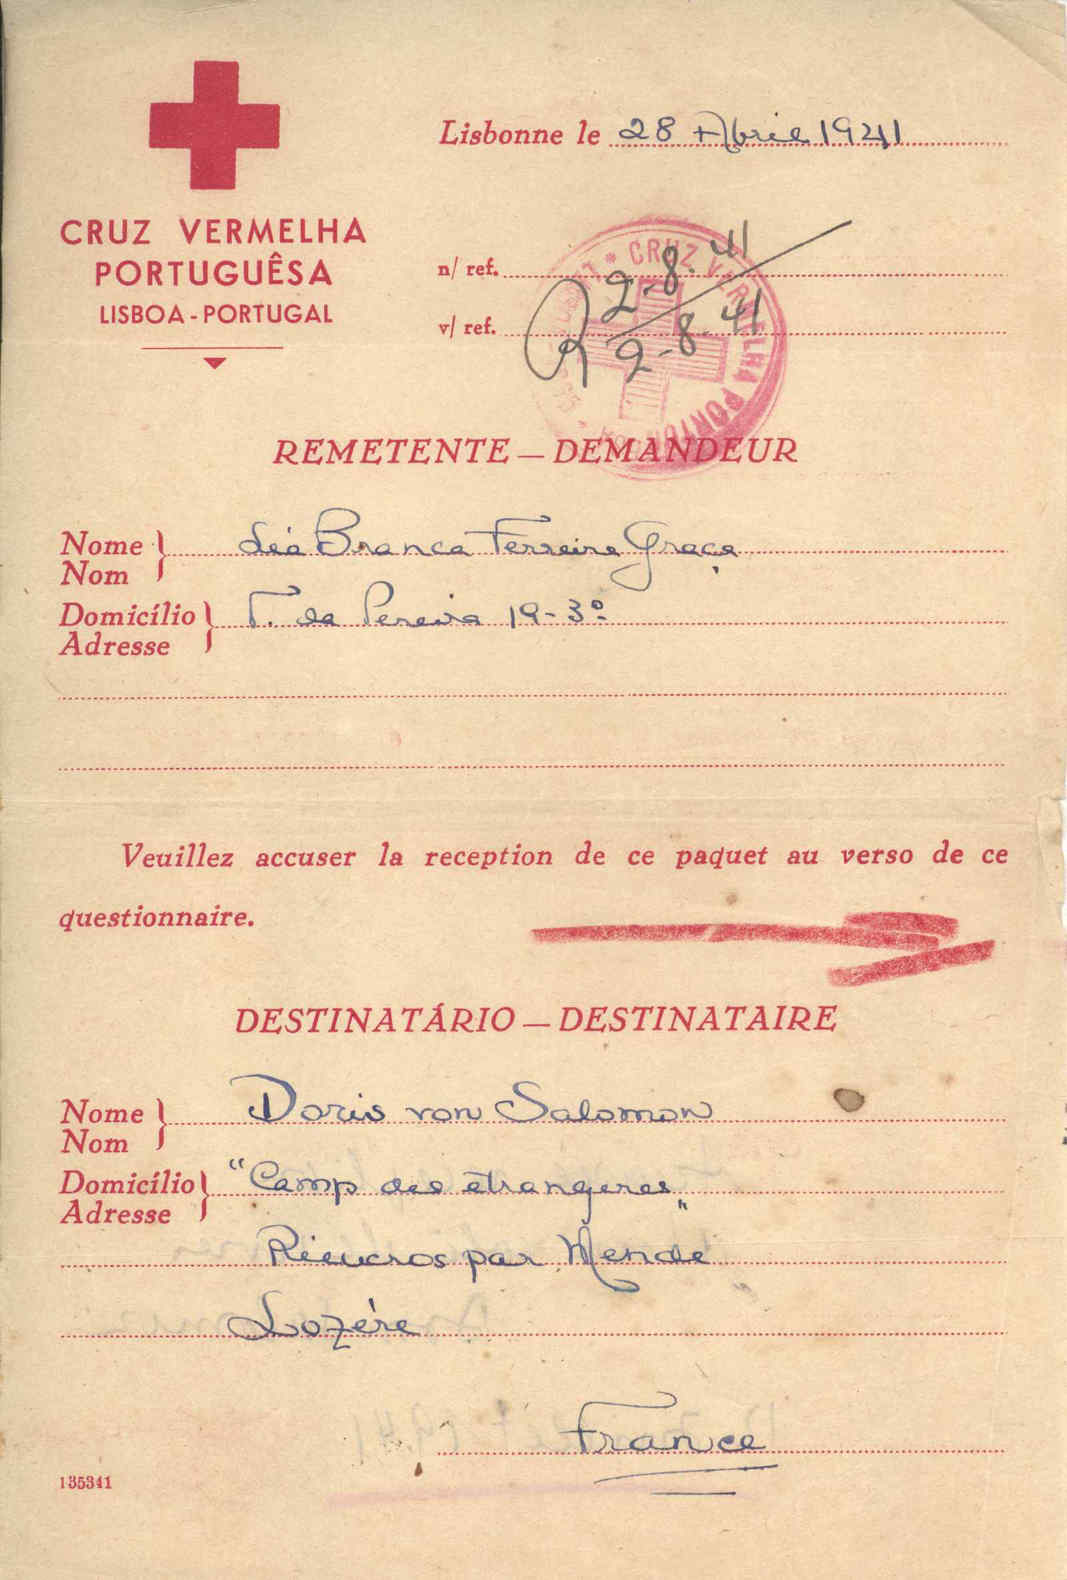 CRUZ VERMELHA
PORTUGUÊSA
LISBOA - PORTUGAL
Lisbonne le 28 Abril 1941
n/ ref. 2-8-41
v/ ref. 2-8-41
CRUZ VERMELHA
REMETENTE — DEMANDEUR
Nome
Nom
Léa Branca Ferreira Graça
Domicílio
Adresse
T. da Pereira 19-3º
Veuillez accuser la reception de ce paquet au verso de ce
questionnaire.
DESTINATÁRIO — DESTINATAIRE
Nome
Nom
Doris von Salomon
Domicílio
Adresse
"Camp des étrangeres"
Rieucros par Mende
Lozére
France
135341